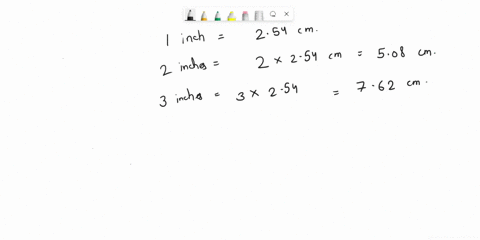 1 inch = 2.54 cm.
2 inches = 2 × 2.54 cm = 5.08 cm.
3 inches = 3 × 2.54 = 7.62 cm.